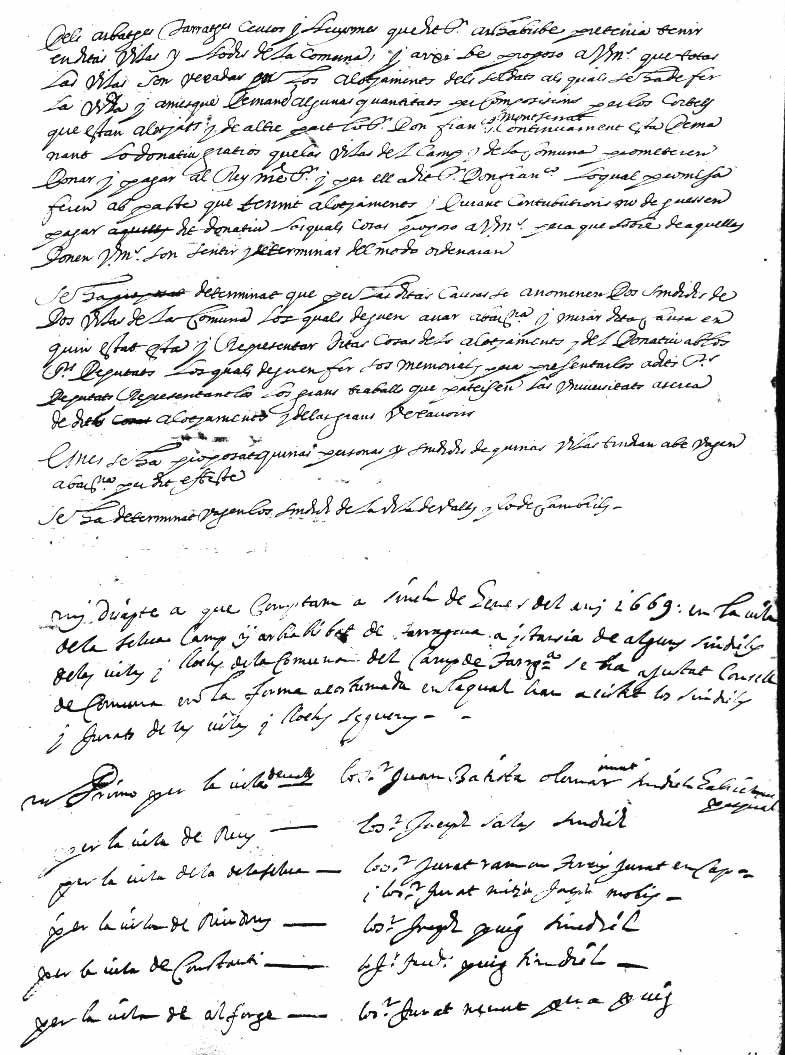 Dels arbatges Tarratges Censos y lluysmes que dit Sr. Arsabisbe pretenia tenir
en ditas Vilas y llochs de la Comuna, y axi be proposo a Vms. que totas
las Vilas son vexadas los Alotjaments dels soldats als quals se ha de fer
la Vida y a mes que Demanan algunas quantitats per Composicions per los Cortells
que estan alotjats, y de altre part lo Sr. Don Fran Monserrat Continuament esta Dema
nant lo donatiu gratios que las Vilas del Camp y de la Comuna prometeren
Donar y pagar al Rey nre Sr. y per ell a dit Sr. Don Franco. lo qual promesa
feren ab pacte que tenint alotjaments y Durant Contributions no deguessen
pagar dit donatiu los quals Cosas proposo a Vms. pera que sobre de aquellas
Donen Vms. son sentir y determinar del modo ordenaran
Se ha determinat que per las ditas Causas se anomenen Dos sindichs de
Dos Vilas de la Comuna los quals degen anar a Barna. y mirar dita Causa en
quin estat esta y Representar ditas Cosas dels alotjaments y del Donatiu als
Srs. Deputats los quals degen fer los memorials pera presentarlos a dits Srs.
Deputats Representantlos los grans traballs que pateixen las Universitats acerca
de dits alotjaments y de las grans Vexacions
E mes se ha proposat quinas personas y sindichs de quinas Vilas tindran a be vagen
a Barna. per dit effecte
Se ha determinat vagen los sindich de la Vila de Valls y lo de Cambrils
Disapte a que Comptam a sinch de Gener del any 1669: en la vila
de la selva Camp y archabisbat de Tarragona a istansia de alguns sindichs
de las vilas y llochs de la Comuna del Camp de Tarrgna. se ha ajustat Consell
de Comuna en la forma acostumada en la qual han asistit los sindichs
y Jurats de las vilas y llochs seguens
Primo per la vila de Valls lo Sr. Juan Batista sindich
per la vila de Reus lo Sr. Joseph Salas sindich
per la vila de la selva lo Sr. Jurat ramon Jurat en Cap
y lo Sr. Jurat mitja Joseph
per la vila de Riudoms lo Sr. Joseph puig sindich
per la vila de Constanti lo Sr. puig sindich
per la vila de alforge lo Sr. Jurat puig